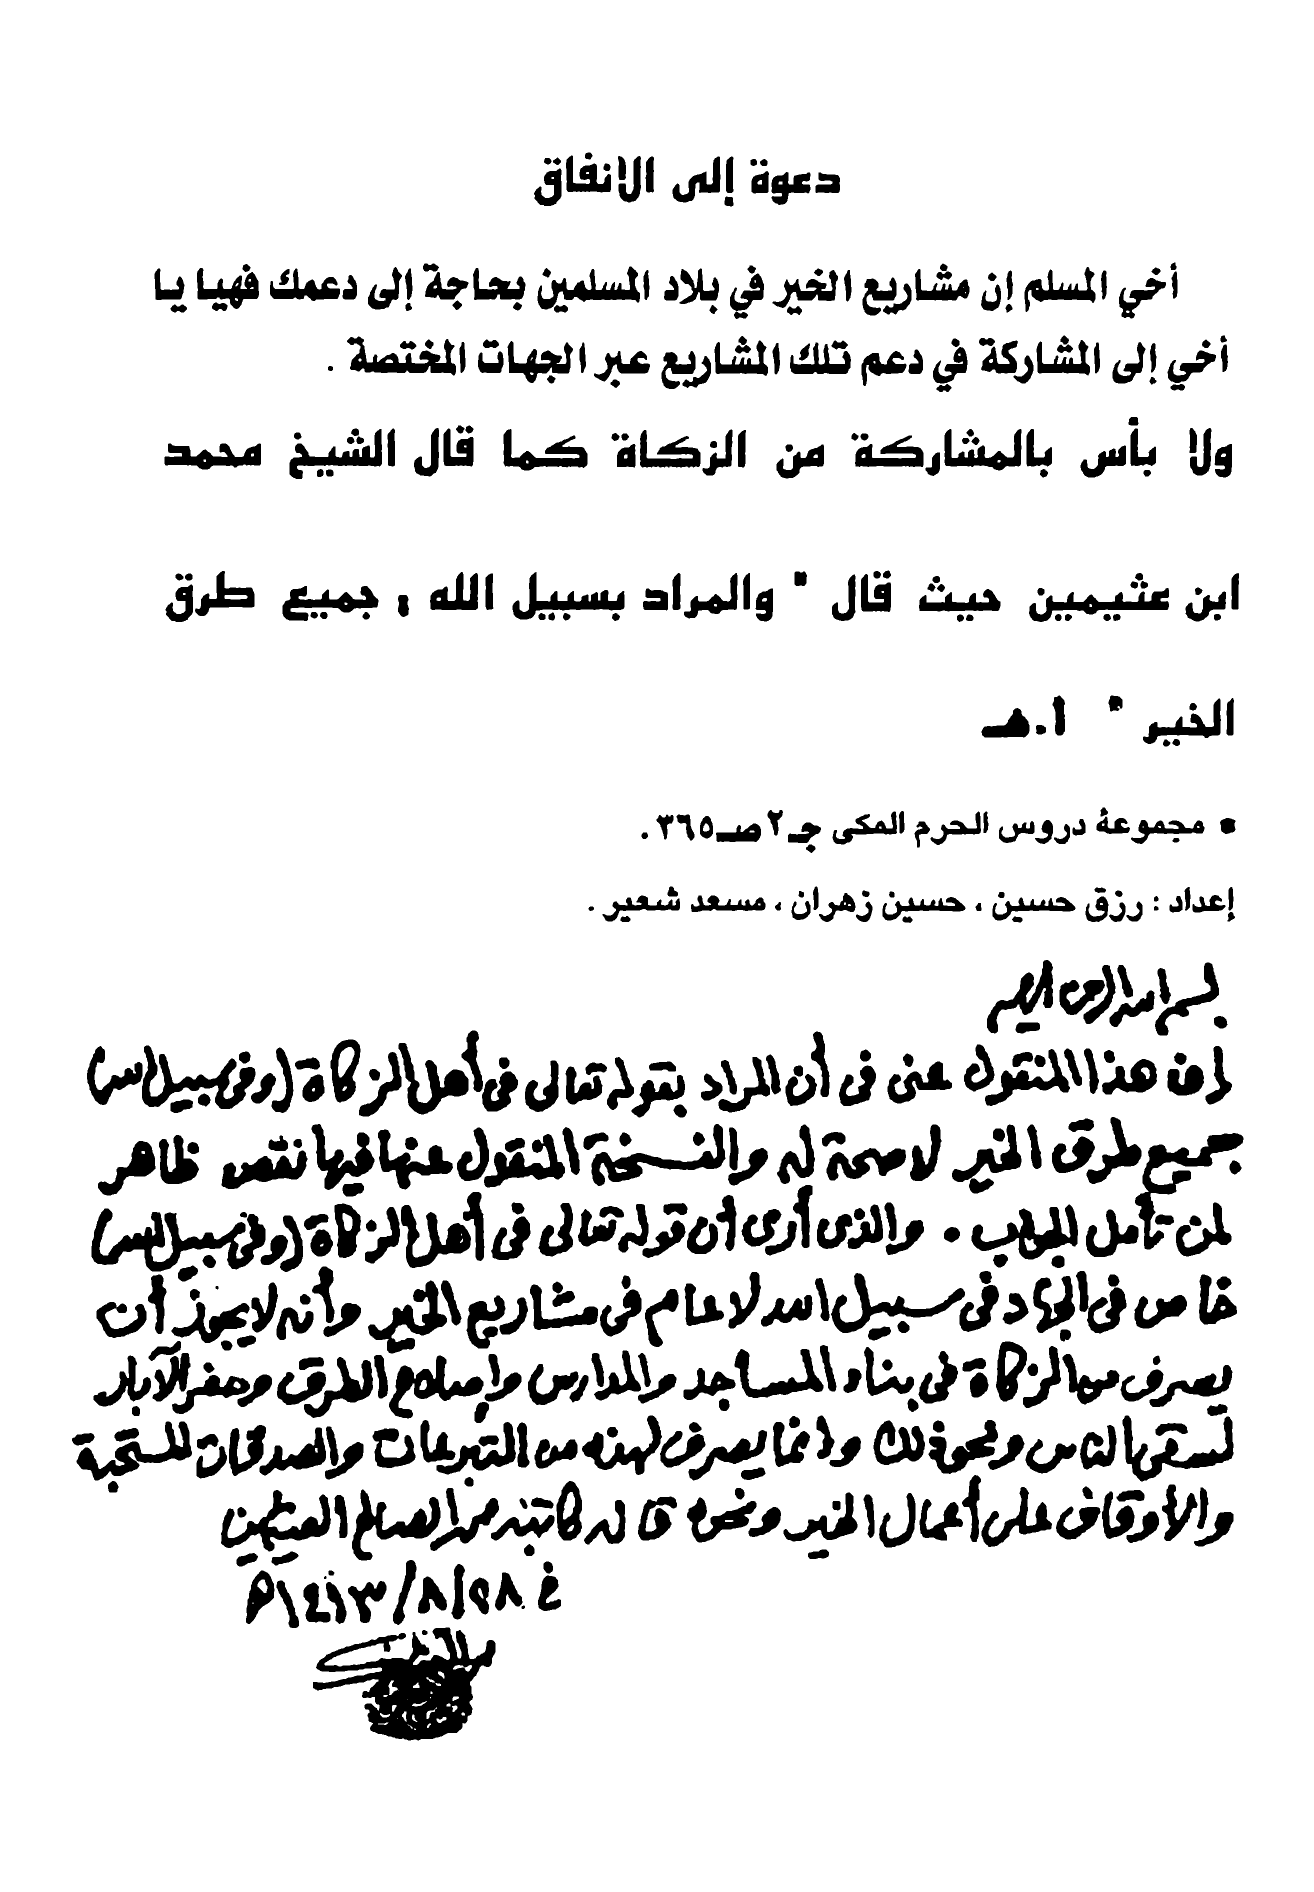 دعوة إلى الانفاق
أخي المسلم إن مشاريع الخير في بلاد المسلمين بحاجة إلى دعمك فهيا يا
أخي إلى المشاركة في دعم تلك المشاريع عبر الجهات المختصة .
ولا بأس بالمشاركة من الزكاة كما قال الشيخ محمد
ابن عثيمين حيث قال " والمراد بسبيل الله : جميع طرق
الخير " ا.هـ
• مجموعة دروس الحرم المكى جـ٢ صـ٣٦٥ .
إعداد : رزق حسين ، حسين زهران ، مسعد شعير .
بسم الله الرحمن الرحيم
إن هذا المنقول عنى فى أن المراد بقوله تعالى فى أهل الزكاة (وفى سبيل الله)
جميع طرق الخير لا صحة له والنسخة المنقول عنها فيها نقص ظاهر
لمن تأمل الجواب . والذى أرى أن قوله تعالى فى أهل الزكاة (وفى سبيل الله)
خاص فى الجهاد فى سبيل الله لا عام فى مشاريع الخير وأنه لا يجوز أن
يصرف من الزكاة فى بناء المساجد والمدارس وإصلاح الطرق وحفر الآبار
لسقى الناس ونحو ذلك وإنما يصرف لهذه من التبرعات والصدقات المستحبة
والأوقاف على أعمال الخير ونحوه قاله كاتبه محمد الصالح العثيمين
فى ٢٨/٨/١٤١٣هـ